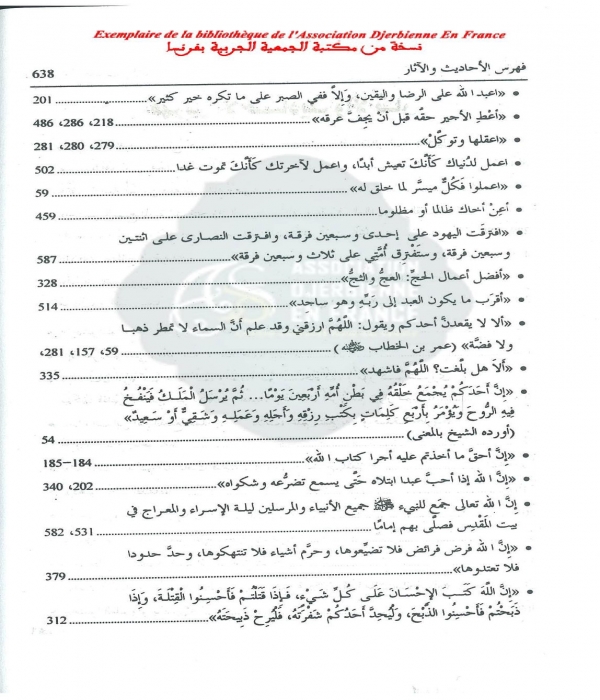 Exemplaire de la bibliothèque de l'Association Djerbienne En France
نسخة من مكتبة الجمعية الجربية بفرنسا
فهرس الأحاديث والآثار 638
• «اعبد الله على الرضا واليقين، وإلاّ ففي الصبر على ما تكره خير كثير» 201
• «أعْطِ الأجير حقّه قبل أنْ يجِفَّ عرقه» 218، 286، 486
• «اعقلها وتوكّلْ» 279، 280، 281
• اعمل لدُنياك كَأنَّكَ تعيش أبدًا، واعمل لآخرتك كَأنَّكَ تموت غدا 502
• «اعملوا فَكُلٌّ ميسَّر لما خلق له» 59
• أعِنْ أخاك ظالما أو مظلوما 459
• «افترقَت اليهود على إحدى وسبعين فرقة، وافترقت النصارى على اثنتين
وسبعين فرقة، وستَفْترق أُمَّتِي على ثلاث وسبعين فرقة» 587
• «أفضل أعمال الحجّ: العجُّ والثجُّ» 328
• «أقرَب ما يكون العبد إلى رَبِّه وهو ساجد» 514
• «ألا لا يقعدنَّ أحدكم ويقول: اللّهُمَّ ارزقنِي وقد علم أنَّ السماء لا تمطر ذهبا
ولا فضّة» (عمر بن الخطاب ﷺ) 59، 157، 281،
• «ألاَ هل بلغت؟ اللّهُمَّ فاشهد» 335
• «إنَّ أحَدَكُمْ يُجْمَعُ خَلْقُهُ فِي بَطْنِ أُمِّهِ أَرْبَعِينَ يَوْمًا... ثُمَّ يُرْسَلُ الْمَلَـكُ فَيَنْفُخُ
فِيهِ الرُّوحَ وَيُؤْمَرُ بِأَرْبَعِ كَلِمَاتٍ بِكَتْبِ رِزْقِهِ وَأَجَلِهِ وَعَمَلِهِ وَشَقِيٌّ أَوْ سَعِيدٌ»
(أورده الشيخ بالمعنى) 54
• «إنَّ أحقَّ ما أخذتم عليه أجرا كتاب الله» 184-185
• «إنَّ الله إذا أحبَّ عبدا ابتلاه حَتَّى يسمع تضرُّعه وشكواه» 202، 340
• إنَّ الله تعالى جمَع للنبيء ﷺ جميع الأنبياء والمرسلين ليلة الإسراء والمعراج في
بيت المَقْدِس فصلَّى بهم إمامًا 531، 582
• «إنَّ الله فرض فرائض فلا تضيِّعوها، وحرَّم أشياء فلا تنتهكوها، وحدَّ حدودا
فلا تعتدوها» 379
• «إنَّ اللّهَ كَتَبَ الإِحْسَانَ عَلَى كُلِّ شَيْءٍ، فَإِذَا قَتَلْتُمْ فَأَحْسِنُوا القِتْلَةَ، وَإِذَا
ذَبَحْتُمْ فَأَحْسِنُوا الذَّبْحَ، وَلْيُحِدَّ أَحَدُكُمْ شَفْرَتَهُ، فَلْيُرِحْ ذَبِيحَتَهُ» 312
ASSOCIATION
DJERBIENNE
EN FRANCE